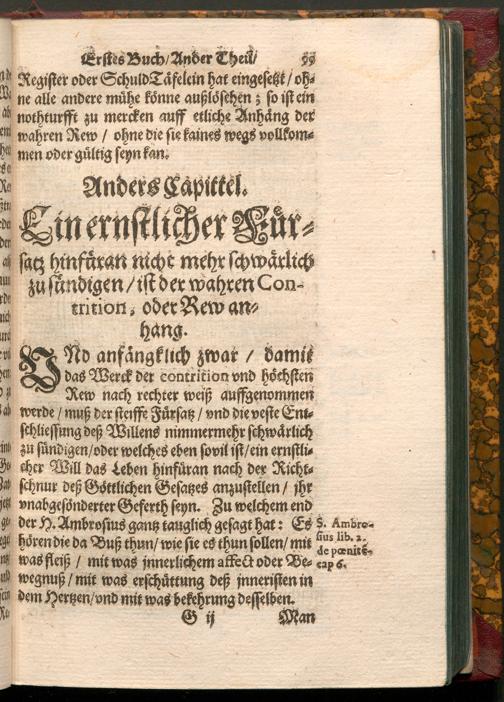 Erstes Buch/ Ander Theil/ 99
Register oder Schuld Täfelein hat eingesetzt / oh-
ne alle andere mühe könne außlöschen ; so ist ein
notturfft zu mercken auff etliche Anhäng der
wahren Rew / ohne die sie kaines wegs vollkom-
men oder gültig seyn kan.
Anders Capittel.
Ein ernstlicher Für-
satz hinfüran nicht mehr schwärlich
zu sündigen / ist der wahren Con-
trition, oder Rew an-
hang.
VNd anfängklich zwar / damit
das Werck der contrition vnd höchsten
Rew nach rechter weiß auffgenommen
werde / muß der steiffe Fürsatz / vnd die veste Ent-
schliessung deß Willens nimmermehr schwärlich
zu sündigen/oder welches eben sovil ist/ein ernstli-
cher Will das Leben hinfüran nach der Richt-
schnur deß Göttlichen Gesatzes anzustellen / jhr
vnabgesönderter Geferth seyn. Zu welchem end
der H. Ambrosius gantz tauglich gesagt hat : Es
hören die da Buß thun/ wie sie es thun sollen/ mit
was fleiß / mit was innerlichem affect oder Be-
wegnuß / mit was erschüttung deß inneristen in
dem Hertzen/vnd mit was bekehrung desselben.
G ij Man
S. Ambro-
sius lib. 2.
de pœnitẽ.
cap 6.